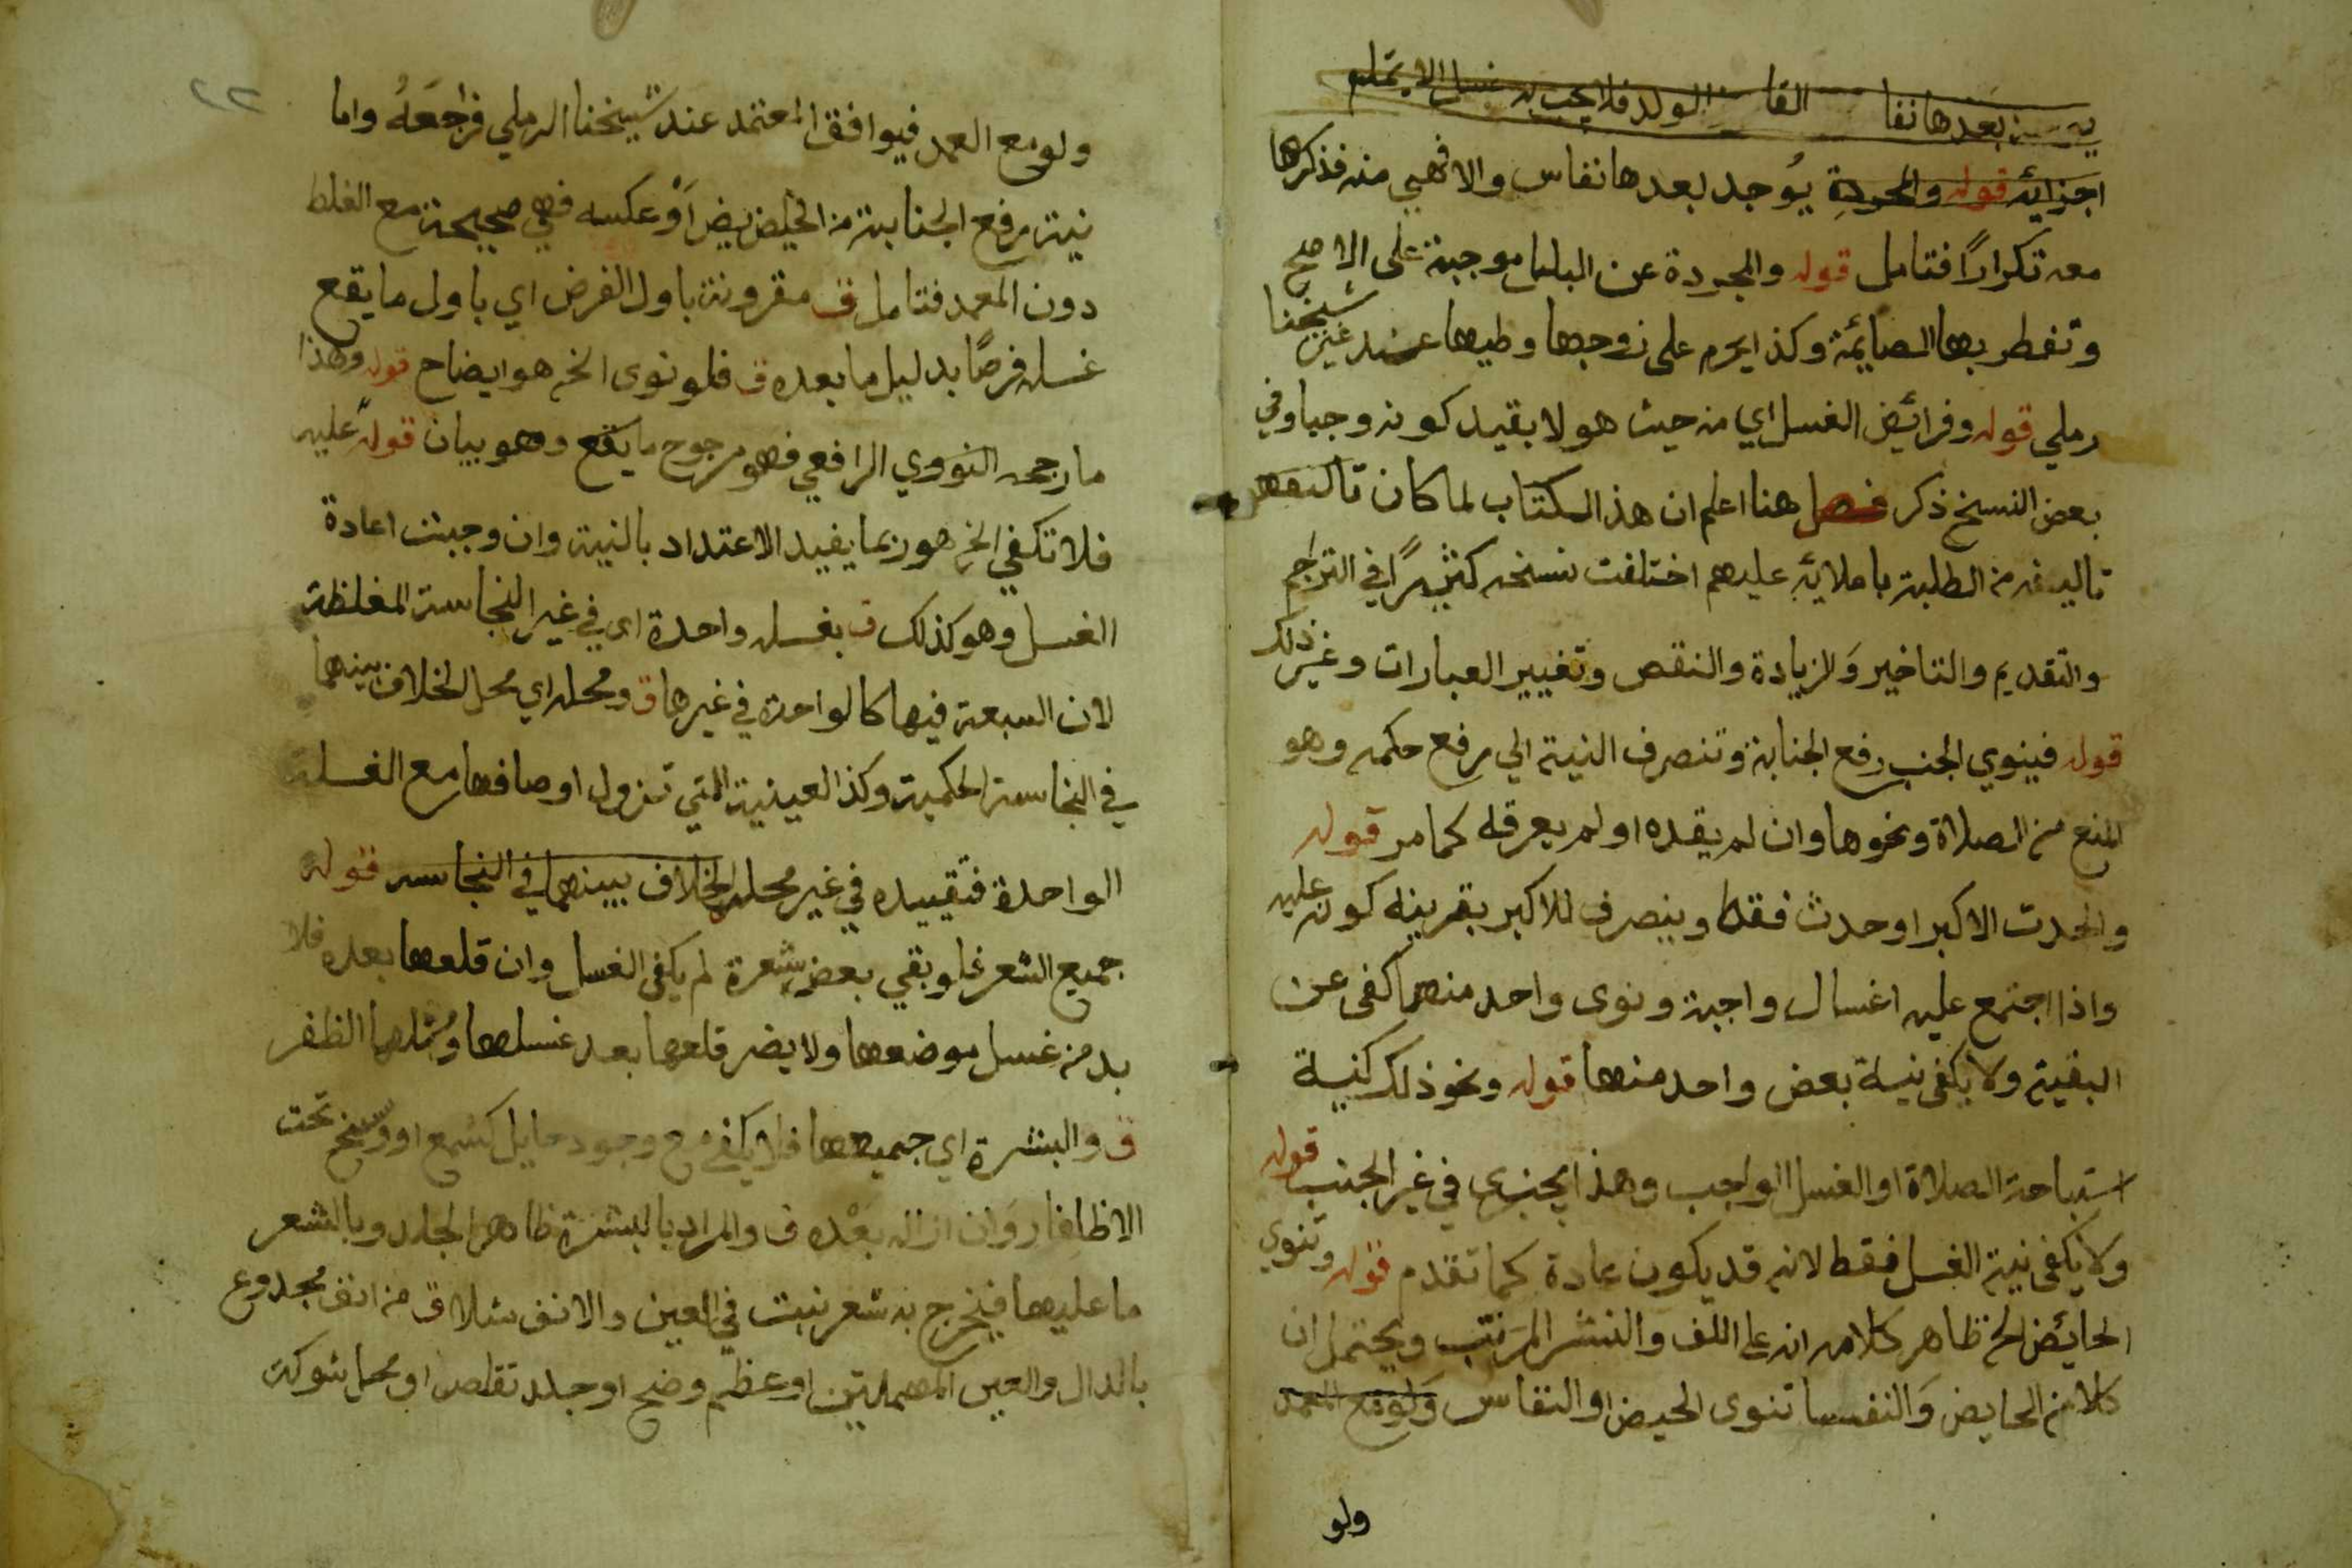 بعدها نفا القا الولد فلا يجب به غسل الا
اجزائه قوله والمجردة يُوجد بعدها نفاس والا فهي منه فذكرها
معه تكراراً فتامل قوله والمجردة عن البلل موجبة على الاصح
وتفطر بها الصايمة وكذا يحرم على زوجها وطيها عند غير شيخنا
رملي قوله وفرائض الغسل اي من حيث هو لا بقيد كونه وجبا وفي
بعض النسخ ذكر فصل هنا اعلم ان هذا الكتاب لما كان
تاليفه من الطلبة باملايه عليهم اختلفت نسخه كثيراً في التراجم
والتقديم والتاخير وَالزيادة والنقص وتغيير العبارات وغير ذلك
قوله فينوي الجنب رفع الجنابة وتنصرف النية الي رفع حكمه وهو
المنع من الصلاة ونحوها وان لم يقده او لم يعرفه كما مر قوله
والحدث الاكبر او حدث فقط وينصرف للاكبر بقرينة كونه عليه
واذا اجتمع عليه اغسال واجبة ونوى واحد منهما كفى عن
البقية ولا يكفي نية بعض واحد منها قوله ونحو ذلك كنية
استباحة الصلاة او الغسل الواجب وهذا يجزي في غير الجنب قوله
ولا يكفي نية الغسل فقط لانه قد يكون عادة كما تقدم قوله وتنوي
الحائض الخ ظاهر كلامه انه على اللف والنشر المرَتب ويحتمل ان
كلا من الحايض وَالنفسا تنوى الحيض او النفاس وَلو مع العمد
ولو
٢٢
ولو مع العمد فيوافق المعتمد عند شيخنا الرملي فراجعَهُ واما
نية رفع الجنابة من الحيض اَوْ عكسه فهي صحيحة مع الغلط
دون العمد فتامل ق مقرونة باول الفرض اي باول ما يقع
غسله فرضًا بدليل ما بعده ق فلو نوى الخ هو ايضاح قوله وهذا
ما رجحه النووي الرافعي فهو مرجوح ما يقع وهو بيان قوله عليه
فلا تكفي الخ هو ربما يفيد الاعتداد بالنية وان وجبت اعادة
الغسل وهو كذلك ق بغسله واحدة اى في غير النجاسة المغلظة
لان السبعة فيها كالواحدة في غيرها ق ومحله اي محل الخلاف بينهما
في النجاسة الحكمية وكذا العينية التي تزول اوصافها مع الغسلة
الواحدة فتقييده في غير محله الخلاف بينهما في النجاسه قوله
جميع الشعر فلو بقي بعض شعرة لم يكفى الغسل وان قلعها بعده فلا
بد من غسل موضعها ولا يضر قلعها بعد غسلها ومثلها الظفر
ق والبشرة اي جميعها فلا يكفي مع وجود حايل كشمع او وسخ تحت
الاظافار وَان ازاله بَعْده ق والمراد بالبشرة ظاهر الجلد وبالشعر
ما عليها فيخرج به شعر نبت في العين والانف مثلا ق من انف مجدوع
بالدال والعين المهملتين او عظم وضح او جلد تقلص او محل شوكة